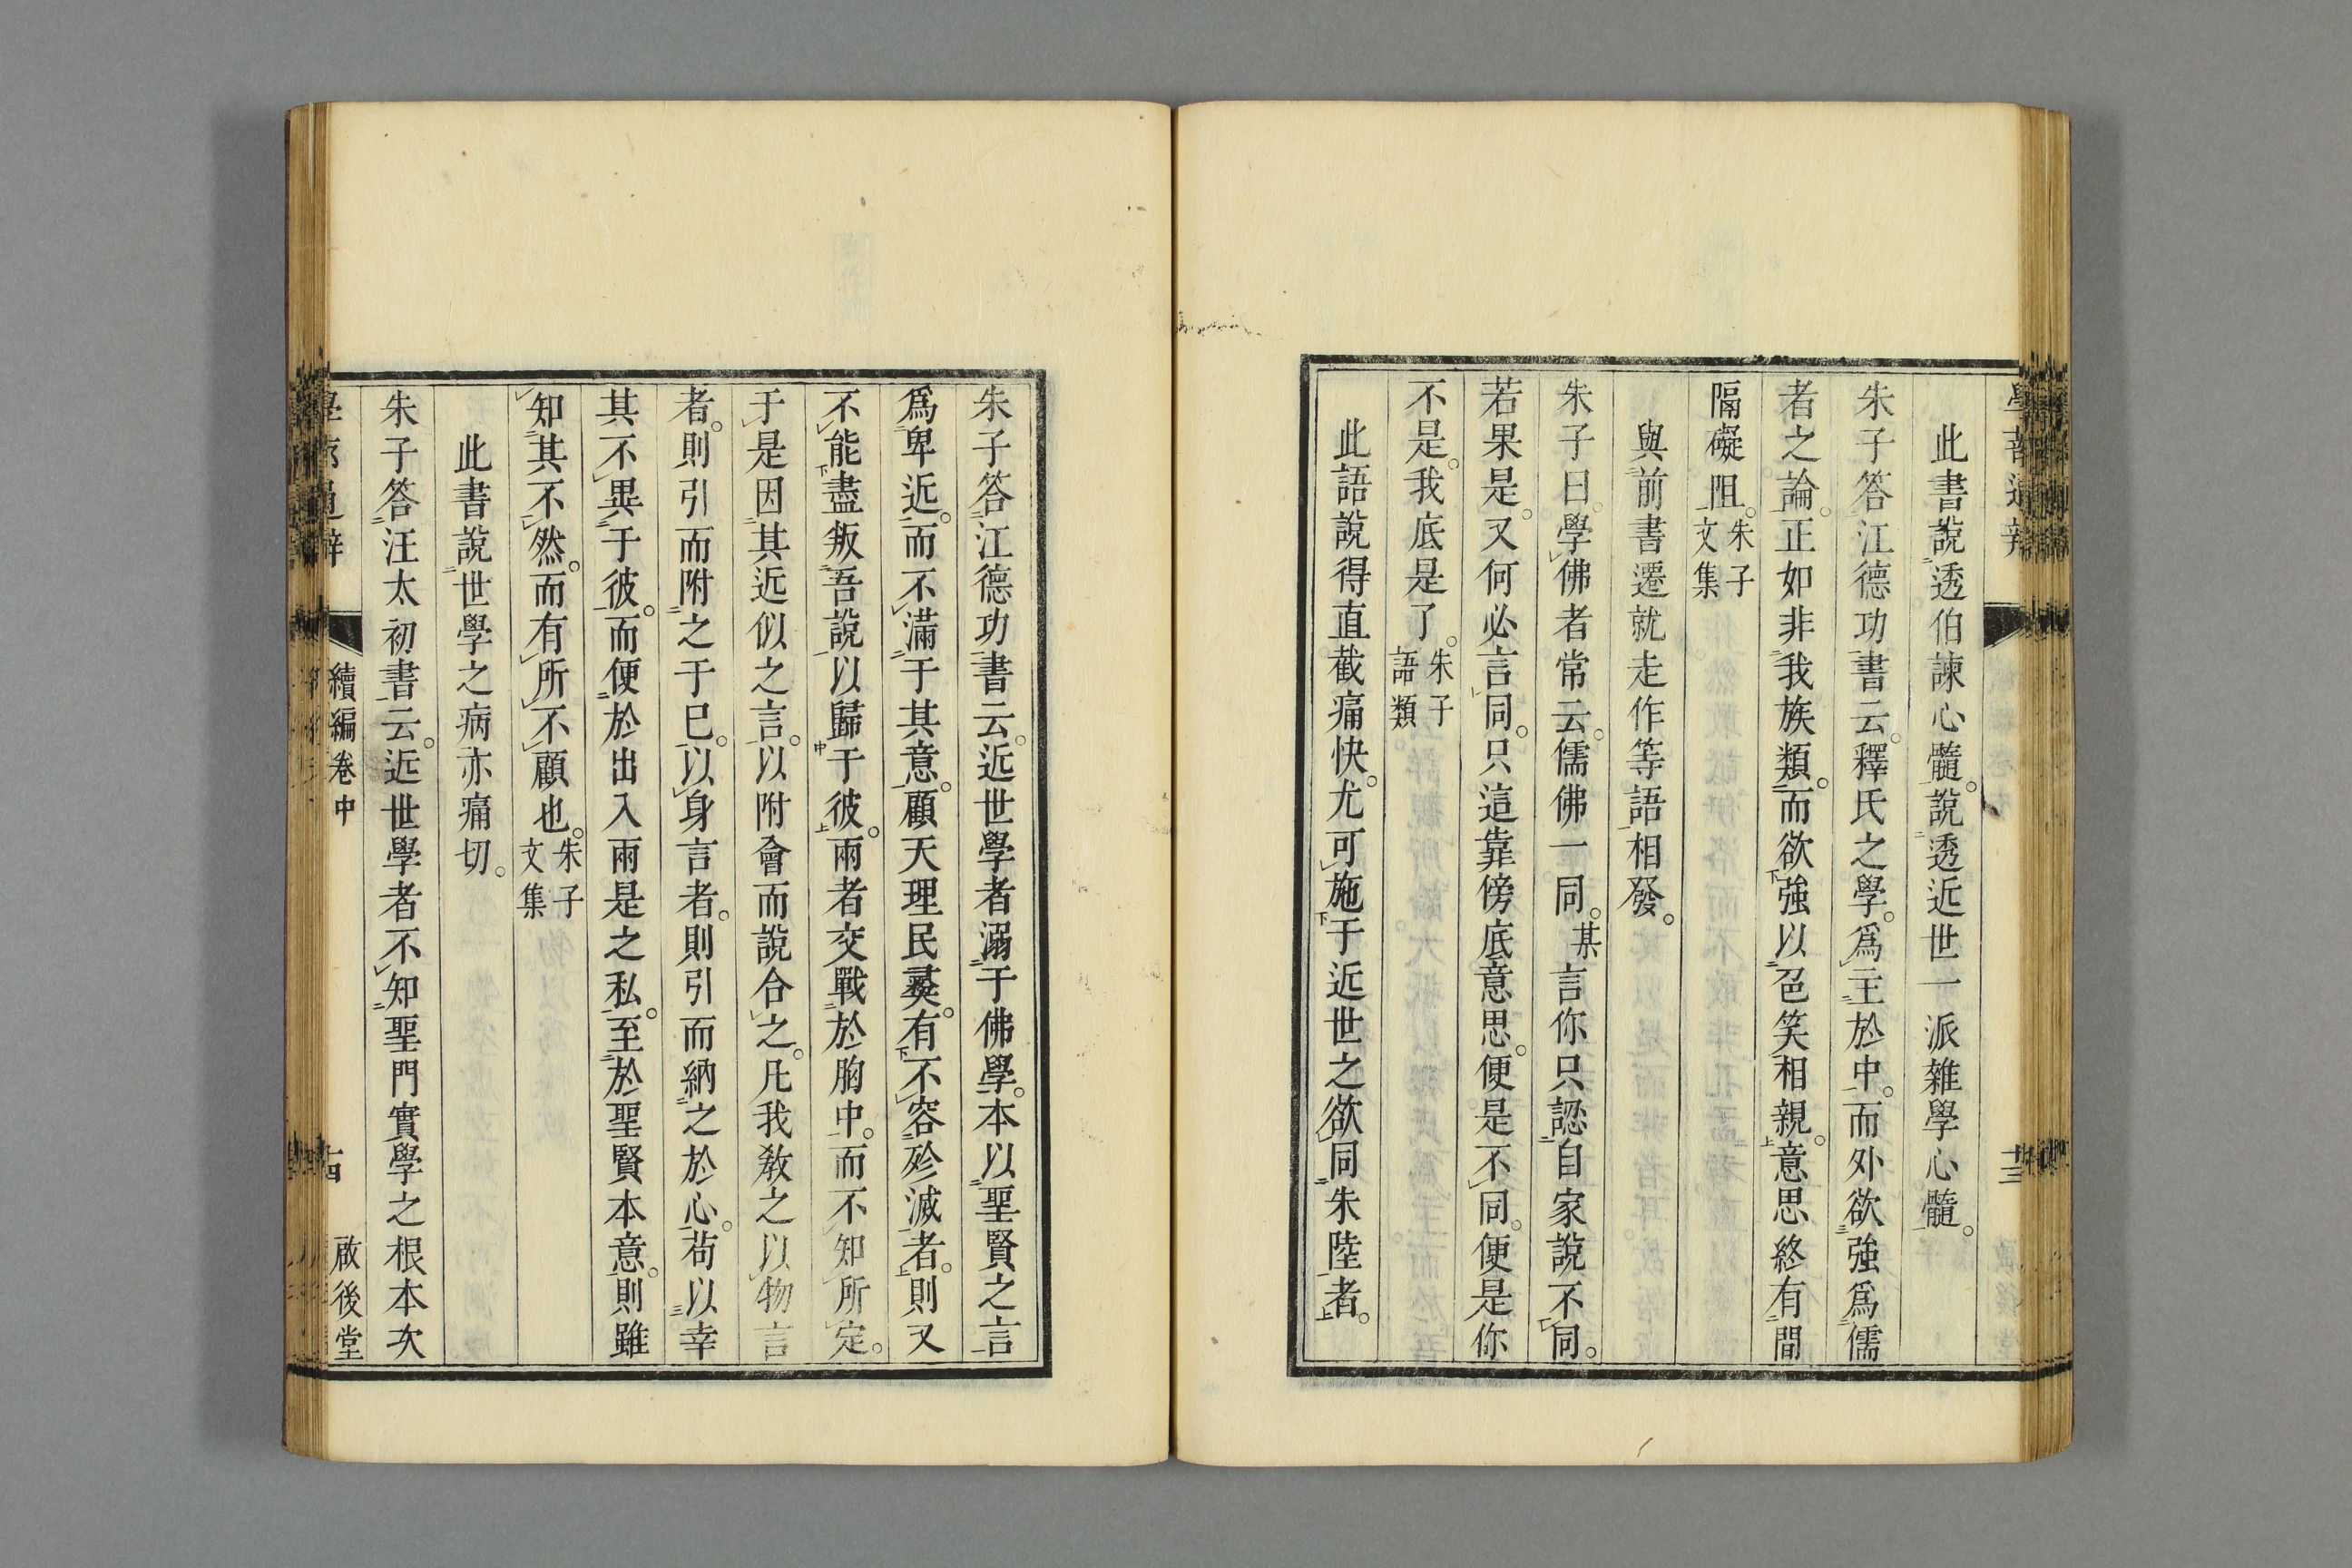 此書說透伯諫心髓。說透近世一派雜學心髓。
朱子答江德功書云。釋氏之學。爲主於中。而外欲強爲儒
者之論。正如非我族類。而欲強以色笑相親。意思終有間
隔礙阻。朱子文集
與前書遷就走作等語相發。
朱子曰。學佛者常云。儒佛一同。某言你只認自家說不同。
若果是。又何必言同。只這靠傍底意思。便是不同。便是你
不是。我底是了。朱子語類
此語說得直截痛快。尤可施于近世之欲同朱陸者。
朱子答江德功書云。近世學者溺于佛學。本以聖賢之言
爲卑近。而不滿于其意。顧天理民彞。有不容殄滅者。則又
不能盡叛吾說以歸于彼。兩者交戰於胸中。而不知所定。
于是因其近似之言。以附會而說合之。凡我教之以物言
者。則引而附之于已。以身言者。則引而納之於心。茍以幸
其不異于彼。而便於出入兩是之私。至於聖賢本意。則雖
知其不然。而有所不顧也。朱子文集
此書說世學之病亦痛切。
朱子答汪太初書云。近世學者不知聖門實學之根本次
續編卷中
啟後堂